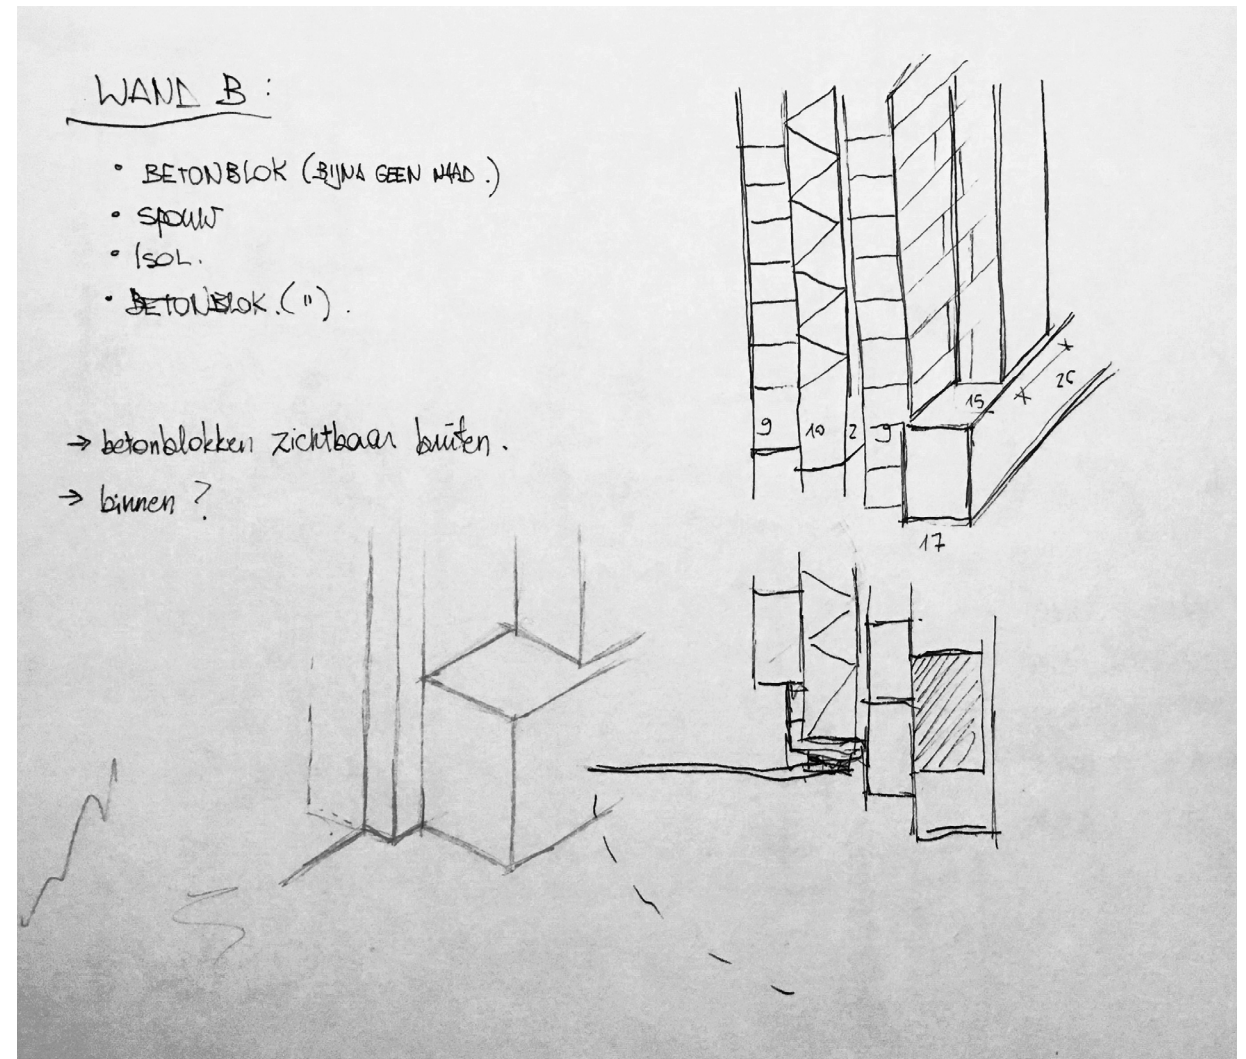 WAND B :
• BETONBLOK (BIJNA GEEN NAAD.)
• SPOUW
• ISOL.
• BETONBLOK. (").
→ betonblokken zichtbaar buiten.
→ binnen ?
9 10 2 9
15
17